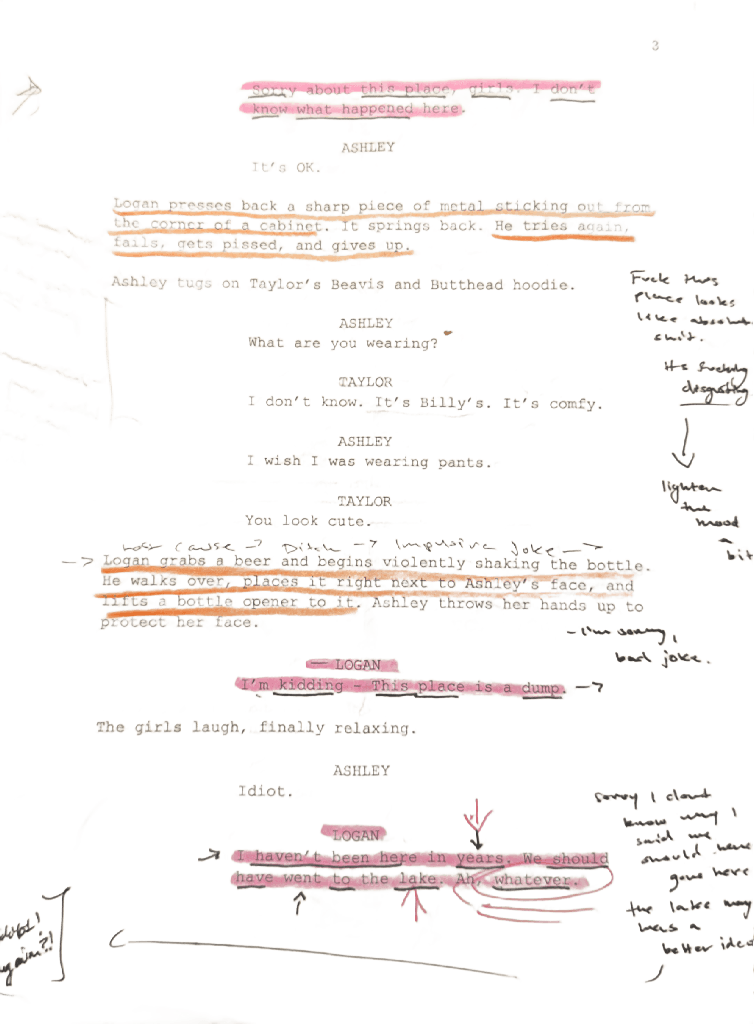 3
Sorry about this place, girls. I don't
know what happened here.
ASHLEY
It's OK.
Logan presses back a sharp piece of metal sticking out from
the corner of a cabinet. It springs back. He tries again,
fails, gets pissed, and gives up.
Ashley tugs on Taylor's Beavis and Butthead hoodie.
Fuck this
place looks
like absolute
shit.
ASHLEY
What are you wearing?
It's fucking
disgusting
TAYLOR
I don't know. It's Billy's. It's comfy.
ASHLEY
I wish I was wearing pants.
lighten
the
mood
bit
TAYLOR
You look cute.
cause → Ditch → Impulsive joke →
→ Logan grabs a beer and begins violently shaking the bottle.
He walks over, places it right next to Ashley's face, and
lifts a bottle opener to it. Ashley throws her hands up to
protect her face.
- I'm sorry,
bad joke.
— LOGAN
I'm kidding - This place is a dump. →
The girls laugh, finally relaxing.
ASHLEY
Idiot.
LOGAN
→ I haven't been here in years. We should
have went to the lake. Ah, whatever.
sorry I dont
know why I
said we
should have
gone here
the lake may
been a
better idea
again?!